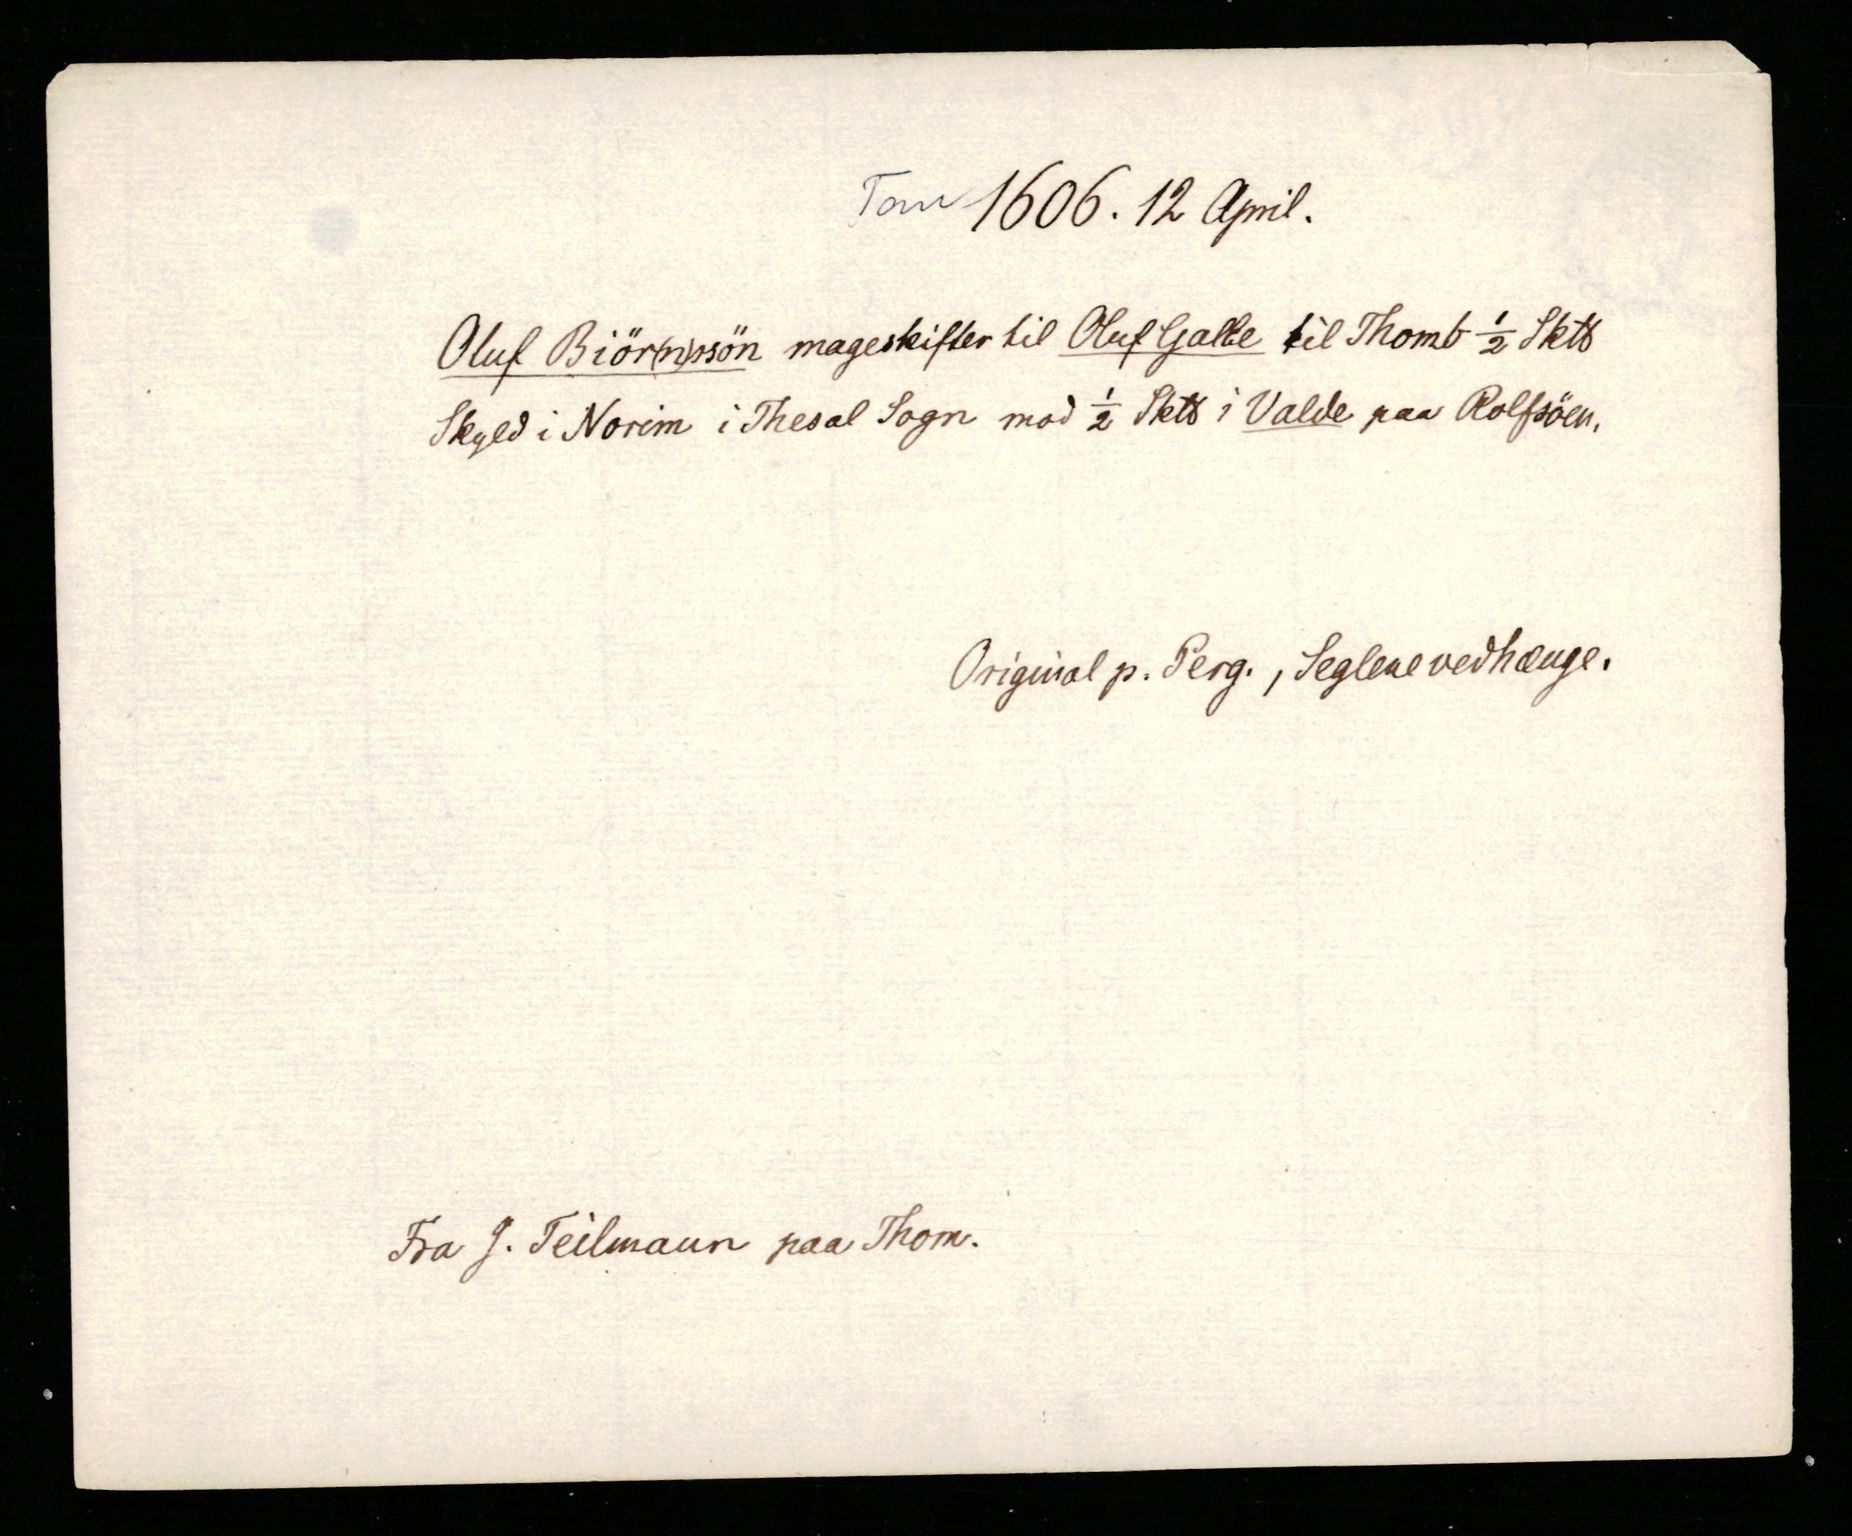 Tom 1606. 12 April.
Oluf Biör(n)ssön mageskifter til Oluf Galle til Thomb ½ Sktt
Skyld i Norim i Thesal Sogn mod ½ Sktt i Valde paa Rolfsöen.
Original p. Perg., Seglene vedhænge.
Fra J. Teilmann paa Thom.